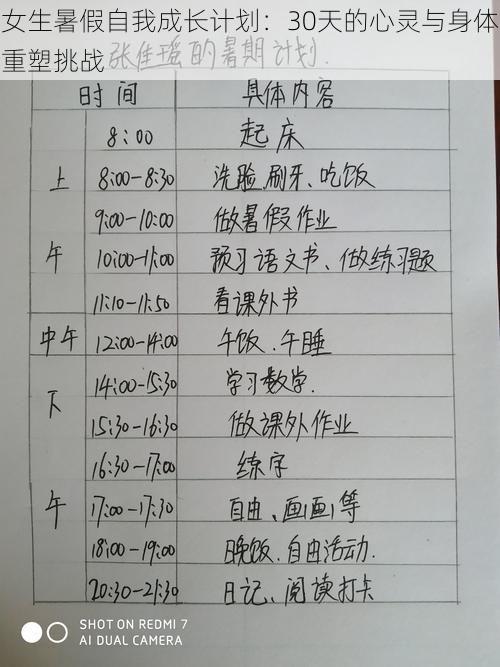 女生暑假自我成长计划：30天的心灵与身体
重塑挑战
张佳瑶的暑期计划.
时间 具体内容
8:00 起床
上
8:00-8:30 洗脸、刷牙、吃饭
9:00-10:00 做暑假作业
午 10:00-11:00 预习语文书、做练习题
11:10-11:50 看课外书
中午 12:00-14:00 午饭、午睡
14:00-15:30 学习数学.
下
15:30-16:30 做课外作业
16:30-17:00 练字
午 17:00-17:30 自由、画画等
18:00-19:00 晚饭、自由活动.
20:30-21:30 日记、阅读打卡
SHOT ON REDMI 7
AI DUAL CAMERA